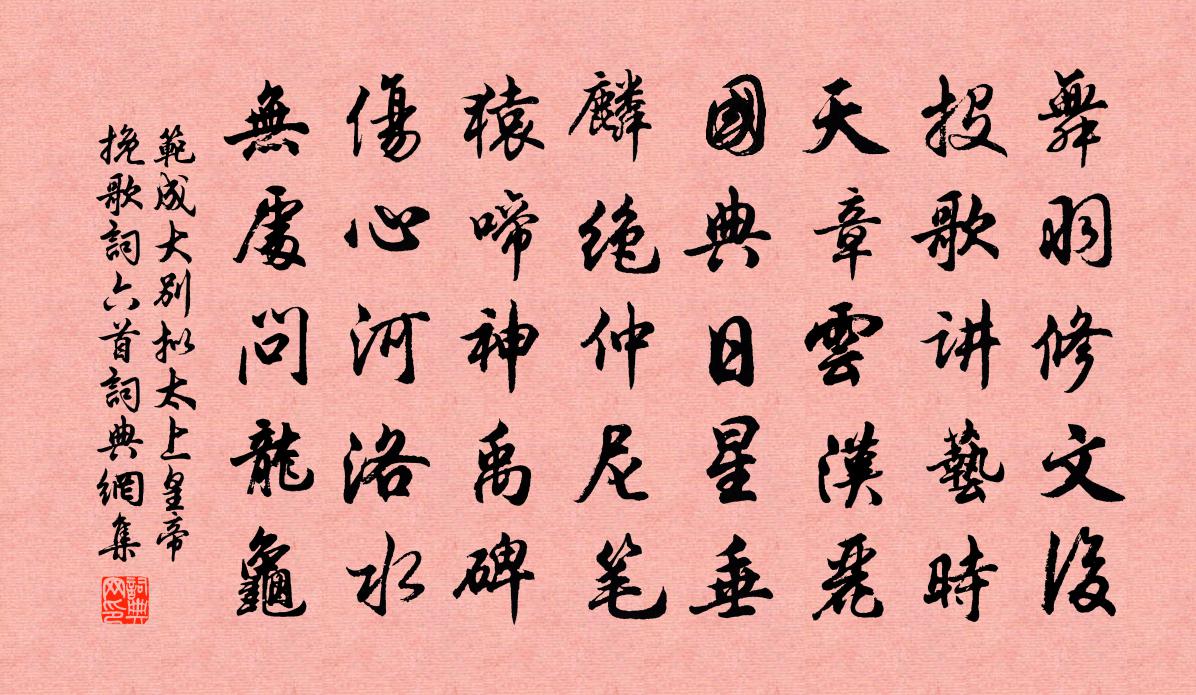 舞羽修文後
投歌讲藝時
天章雲漢麗
國典日星垂
麟绝仲尼笔
猿啼神禹碑
傷心河洛水
無處問龍龜
範成大别拟太上皇帝
挽歌詞六首詞典網集
詞典网印